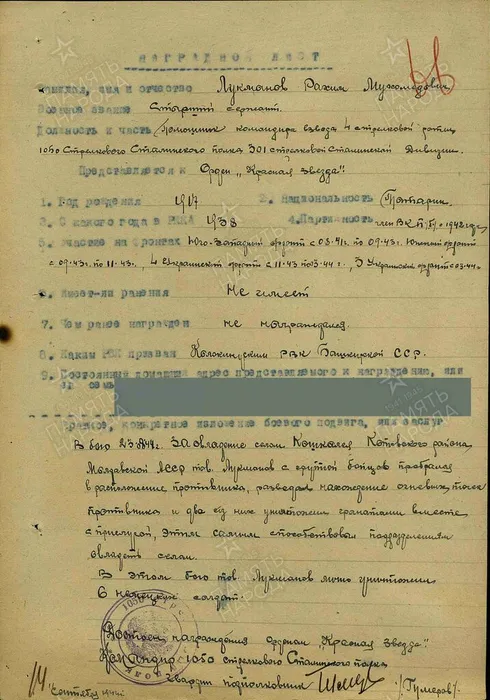 НАГРАДНОЙ ЛИСТ
Фамилия, имя и отчество Лукманов Рахим Мухамедович
Военное звание Старший сержант.
Должность и часть Помощник командира взвода 4 стрелковой роты
1050 Стрелкового Сталинского полка 301 стрелковой Сталинской Дивизии.
Представляется к Орден „Красная звезда".
1. Год рождения 1917 2. Национальность Татарин
3. С какого года в РККА 1938 4. Партийность член ВКП/б/ с 1942 года
5. Участие на фронтах Юго-Западный фронт с 03.41г. по 09.43г. Южный фронт
с 09.43г. по 11.43г., 4 Украинский фронт с 11.43 по 3.44г., 3 Украинский фронт с 03.44г.
6. Имеет-ли ранения Не имеет
7. Чем ранее награжден не награждался.
8. Каким РВК призван РВК Башкирской ССР.
9. Постоянный домашний адрес представляемого к награждению, или
его семьи
Краткое, конкретное изложение боевого подвига, или заслуг
В бою 23.8.44г. За овладение селом Кошкалия Котовского района
Молдавской ССР тов. Лукманов с группой бойцов пробрался
в расположение противника, разведал нахождение огневых точек
противника и два из них уничтожил гранатами вместе
с прислугой, этим самым способствовал подразделениям
овладеть селом.
В этом бою тов. Лукманов лично уничтожил
6 немецких солдат.
Достоин награждения орденом „Красная звезда".
Командир 1050 стрелкового Сталинского полка
гвардии подполковник /Гумеров/
сентября 1944г.
ПАМЯТЬ НАРОДА